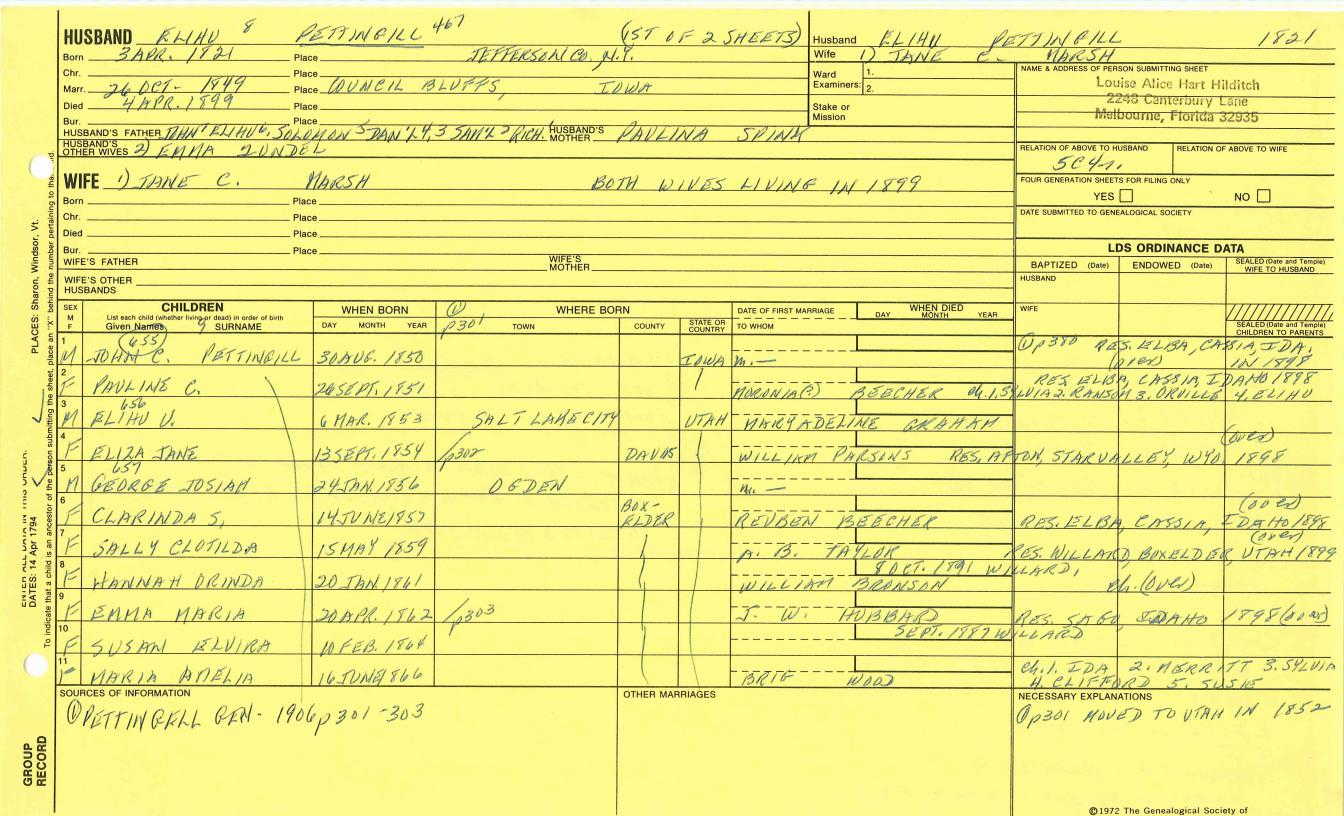 HUSBAND ELIHU 8 PETTINGILL 467 (1ST OF 2 SHEETS)
Born 3 APR. 1821 Place JEFFERSON CO. N.Y.
Chr. Place
Marr. 26 OCT- 1849 Place COUNCIL BLUFFS, IOWA
Died 4 APR. 1899 Place
Bur. Place
HUSBAND'S FATHER JOHN 7 ELIHU 6, SOLOMON 5 DAN'L 4,3 SAM'L 2 RICH. 1 HUSBAND'S MOTHER PAULINA SPINK
HUSBAND'S OTHER WIVES 2) EMMA ZUNDEL
Husband ELIHU PETTINGILL 1821
Wife 1) JANE C. MARSH
Ward Examiners: 1.
2.
Stake or Mission
NAME & ADDRESS OF PERSON SUBMITTING SHEET
Louise Alice Hart Hilditch
2248 Canterbury Lane
Melbourne, Florida 32935
RELATION OF ABOVE TO HUSBAND RELATION OF ABOVE TO WIFE
5C4r.
FOUR GENERATION SHEETS FOR FILING ONLY
YES NO
DATE SUBMITTED TO GENEALOGICAL SOCIETY
WIFE 1) JANE C. MARSH BOTH WIVES LIVING IN 1899
Born Place
Chr. Place
Died Place
Bur. Place
WIFE'S FATHER WIFE'S MOTHER
WIFE'S OTHER HUSBANDS
LDS ORDINANCE DATA
BAPTIZED (Date) ENDOWED (Date) SEALED (Date and Temple) WIFE TO HUSBAND
HUSBAND
WIFE
SEALED (Date and Temple) CHILDREN TO PARENTS
SEX M F CHILDREN WHEN BORN WHERE BORN DATE OF FIRST MARRIAGE WHEN DIED
List each child (whether living or dead) in order of birth
Given Names 9 SURNAME DAY MONTH YEAR ① p301 TOWN COUNTY STATE OR COUNTRY TO WHOM DAY MONTH YEAR
1 M (655) JOHN C. PETTINGILL 30 AUG. 1850 IOWA m. — ① p380 RES. ELBA, CASSIA, IDA. (over) IN 1898
2 F PAULINE C. 26 SEPT. 1851 MORONIA(?) BEECHER RES ELBA, CASSIA, IDAHO 1898
ch. 1. SYLVIA 2. RANSOM 3. ORVILLE 4. ELIHU
3 M 656 ELIHU U. 6 MAR. 1853 SALT LAKE CITY UTAH MARY ADELINE GRAHAM (over)
4 F ELIZA JANE 13 SEPT. 1854 p302 DAVIS WILLIAM PARSONS RES. AFTON, STAR VALLEY, WYO. 1898
5 M 657 GEORGE JOSIAH 24 JAN. 1856 OGDEN m. —
6 F CLARINDA S, 14 JUNE 1857 BOX-ELDER REUBEN BEECHER (over) RES. ELBA, CASSIA, IDAHO 1898
7 F SALLY CLOTILDA 15 MAY 1859 A. B. TAYLOR (over) RES. WILLARD, BOXELDER, UTAH 1899
8 F HANNAH ORINDA 20 JAN 1861 8 OCT. 1891 WILLARD, WILLIAM BRONSON ch. (over)
9 F EMMA MARIA 20 APR. 1862 p303 J. W. HUBBARD RES. SAGO, IDAHO 1898 (over)
10 F SUSAN ELVIRA 10 FEB. 1864 SEPT. 1887 WILLARD
11 F MARIA AMELIA 16 JUNE 1866 BRIG WOOD ch. 1. IDA 2. MERRITT 3. SYLVIA
4. CLIFFORD 5. SUSIE
SOURCES OF INFORMATION
① PETTINGELL GEN- 1906 p301-303
OTHER MARRIAGES
NECESSARY EXPLANATIONS
① p301 MOVED TO UTAH IN 1852
©1972 The Genealogical Society of
PLACES: Sharon, Windsor, Vt.
DATES: 14 Apr 1794
ENTER ALL DATA IN THIS ORDER:
To indicate that a child is an ancestor of the person submitting the sheet, place an "X" behind the number pertaining to that
GROUP RECORD